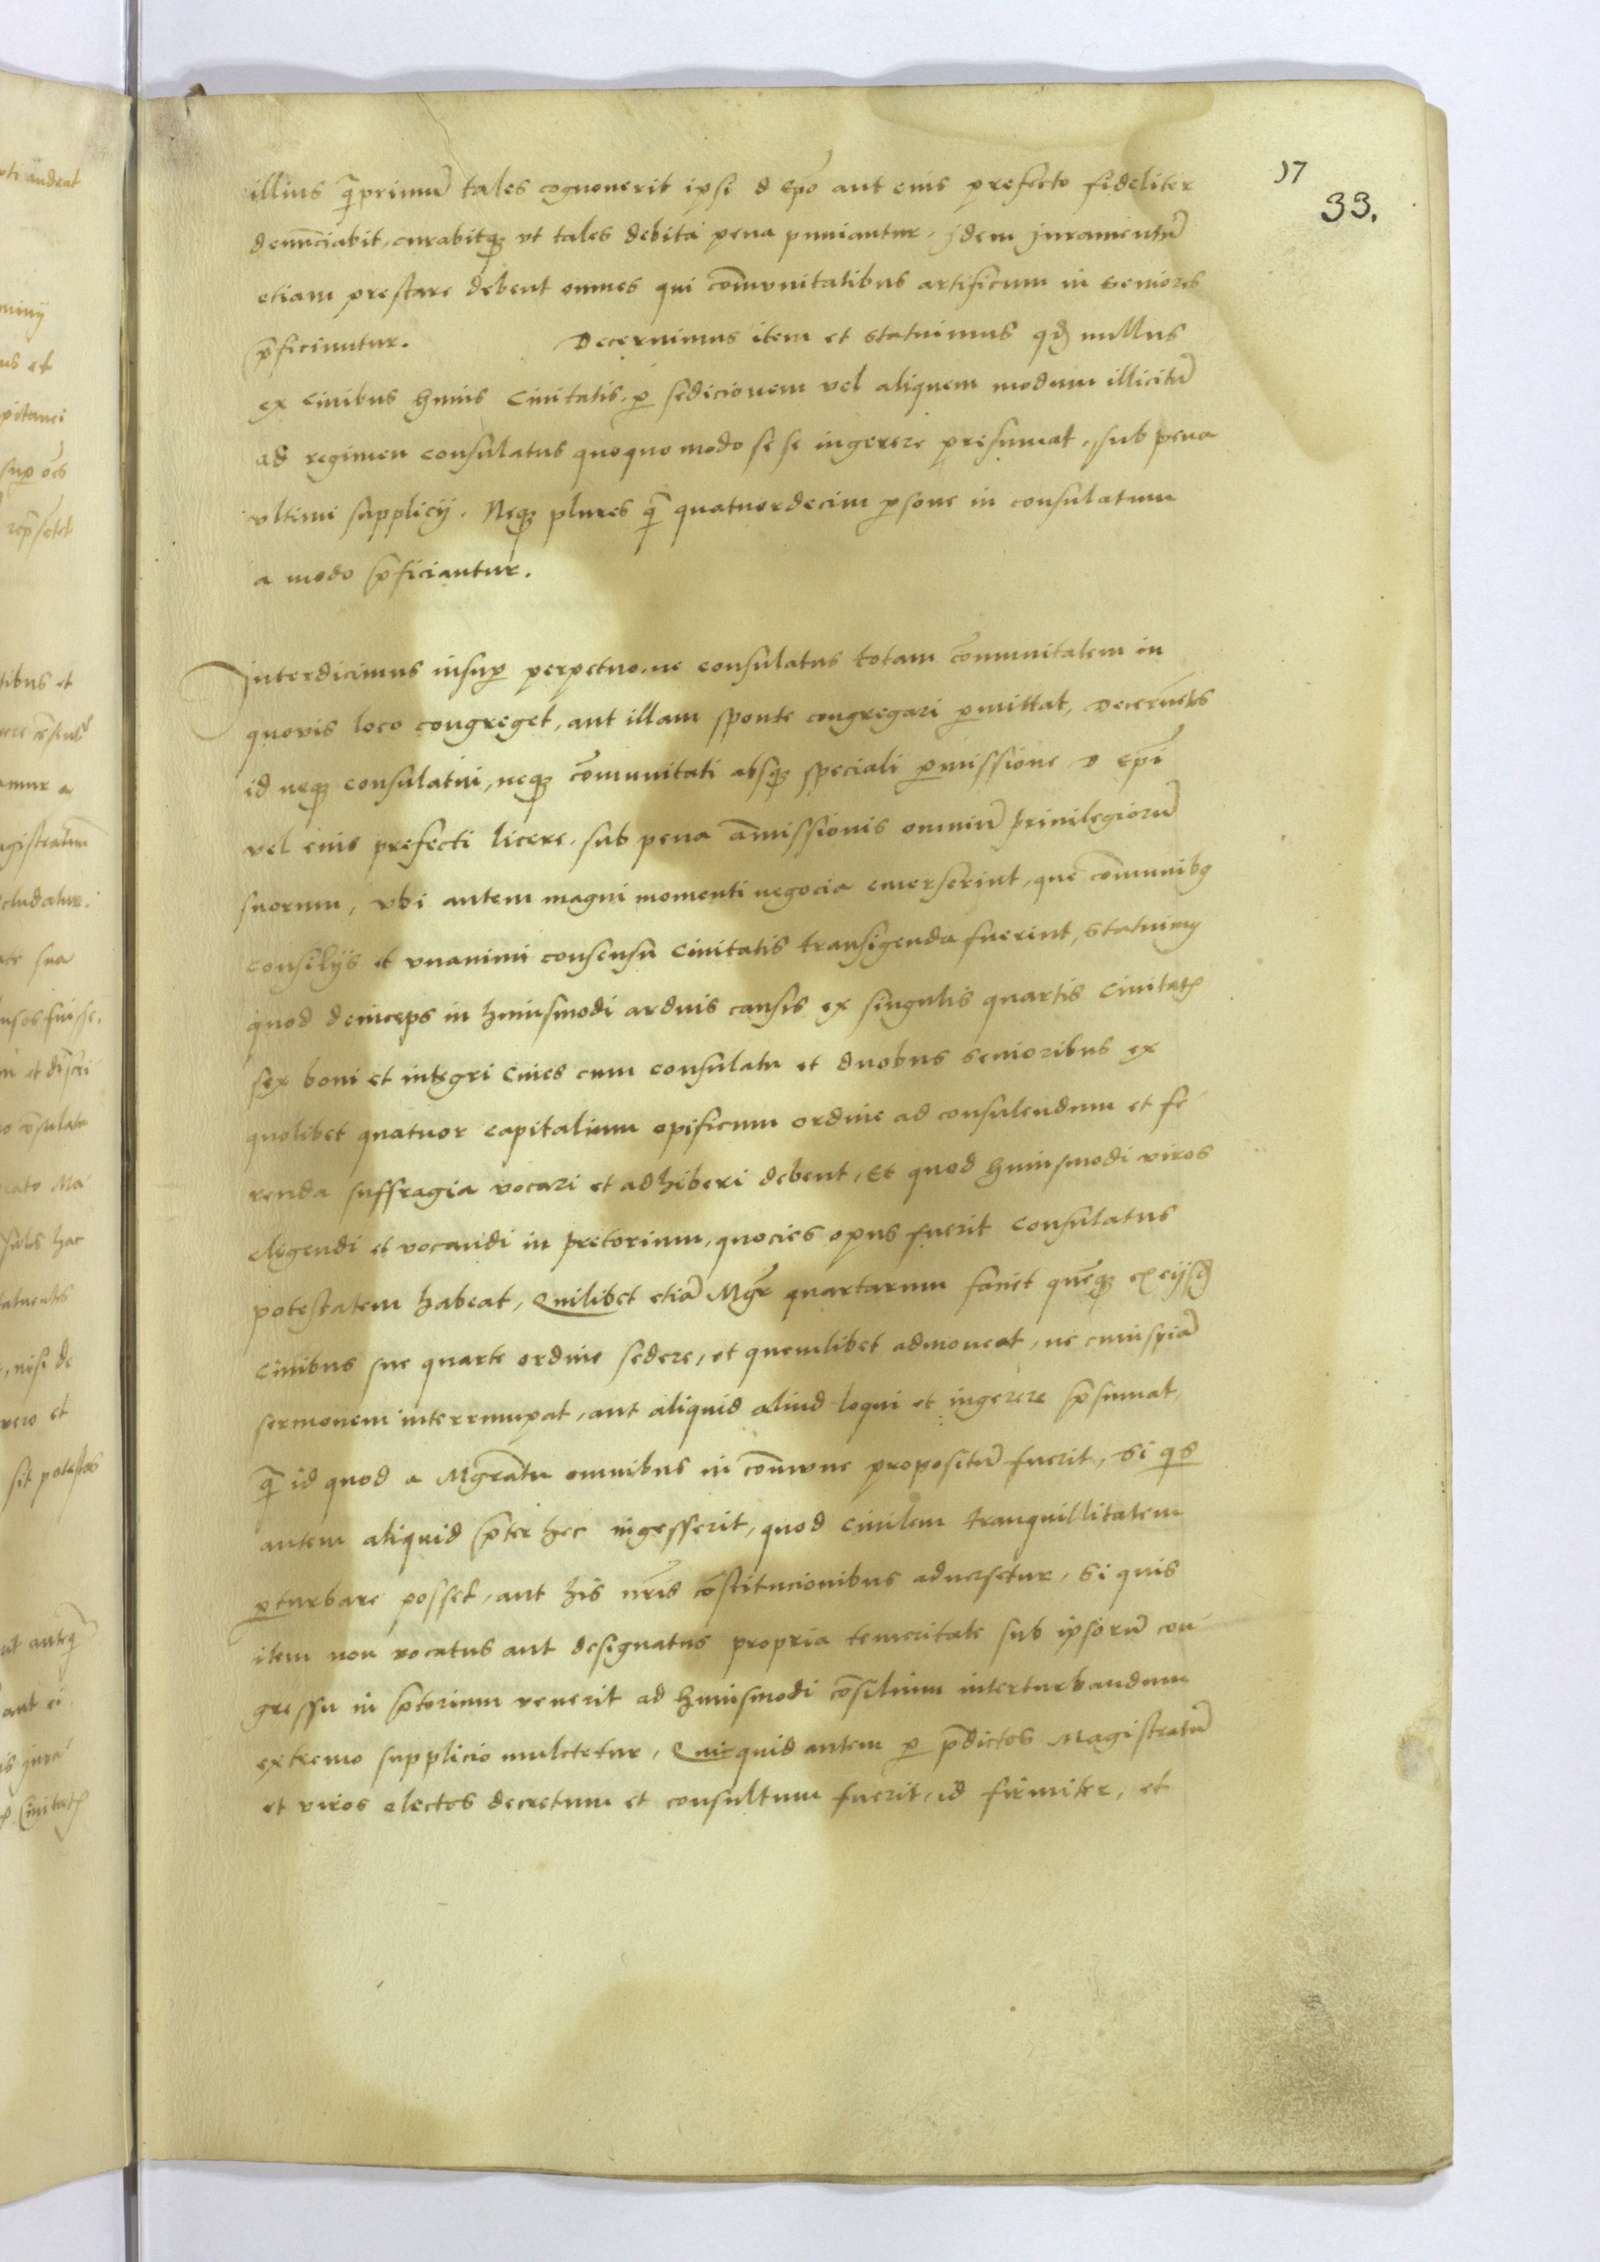 17
33.
illius q̃primũ tales cognouerit ipsi d Epõ aut eius prefecto fideliter
denũciabit, curabitqꝫ vt tales debita pena puniantur, Idem Juramentũ
etiam prestare debent omnes qui cõmvnitatibus artificum in seniores
p̃ficiuntur. Decernimus item et statuimus qđ nullus
ex Ciuibus huius Ciuitatis, ꝑ sedicionem vel aliquem modum illicitũ
ad regimen consulatus quoquo modo se se ingerere presumat, sub pena
vltimi supplicij. Neqꝫ plures q̃ quatuordecim ꝑsone in consulatum
a modo p̃ficiantur.
Interdicimus insuꝑ perpetuo, ne consulatus totam cõmunitatem in
quouis loco congreget, aut illam sponte congregari ꝑmittat, Decernẽtes
id neqꝫ consulatui, neqꝫ cõmunitati absqꝫ speciali ꝑmissione D Epĩ
vel eius prefecti licere, sub pena ãmissionis omniũ priuilegiorũ
suorum, vbi autem magni momenti negocia emerserint, que cõmunibꝫ
consilijs et vnanimi consensu Ciuitatis transigenda fuerint, statuimꝰ
quod deinceps in huiusmodi arduis causis ex singulis quartis Ciuitatꝭ
sex boni et integri Ciues cum consulatu et duobus senioribus ex
quolibet quatuor capitalium opificum ordine ad consulendum et fe-
renda suffragia vocari et adhiberi debent, Et quod huiusmodi viros
eligendi et vocandi in pretorium, quocies opus fuerit Consulatus
potestatem habeat, Quilibet etiã Mgr̃ quartarum faciet quẽqꝫ ex eijsđ
Ciuibus sue quarte ordine sedere, et quemlibet admoueat, ne cuiuspiã
sermonem interrumpat, aut aliquid aliud loqui et ingerere p̃sumat,
q̃ id quod a Mgr̃atu omnibus in cõmvne propositũ fuerit, Si qs
autem aliquid p̃ter hec ingesserit, quod Ciuilem tranquillitatem
ꝑturbare posset, aut his nr̃is cõstitucionibus aduersetur, Si quis
item non vocatus aut designatus propria temeritate sub ipsorũ con-
gressu in p̃torium venerit ad huiusmodi cõsilium interturbandum
extremo supplicio mulctetur, Quicquid autem ꝑ p̃dictos Magistratũ
et viros electos decretum et consultum fuerit, id firmiter, et